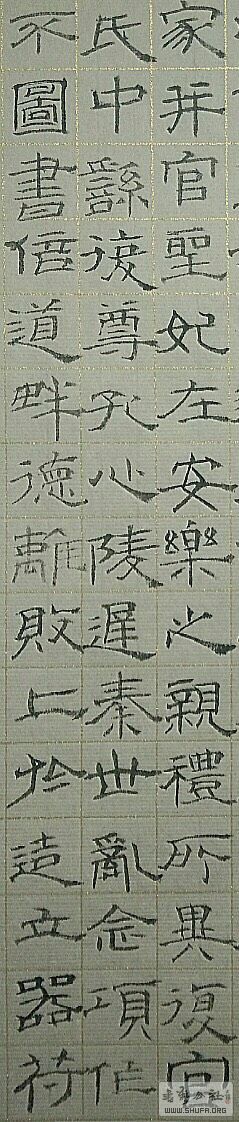 家并官聖妃在安樂之親禮所異復
氏中繇尊孔心陵遲秦世亂念項作
不圖書倍道畔德離敗上於造立器符
WWW.SHUFA.ORG